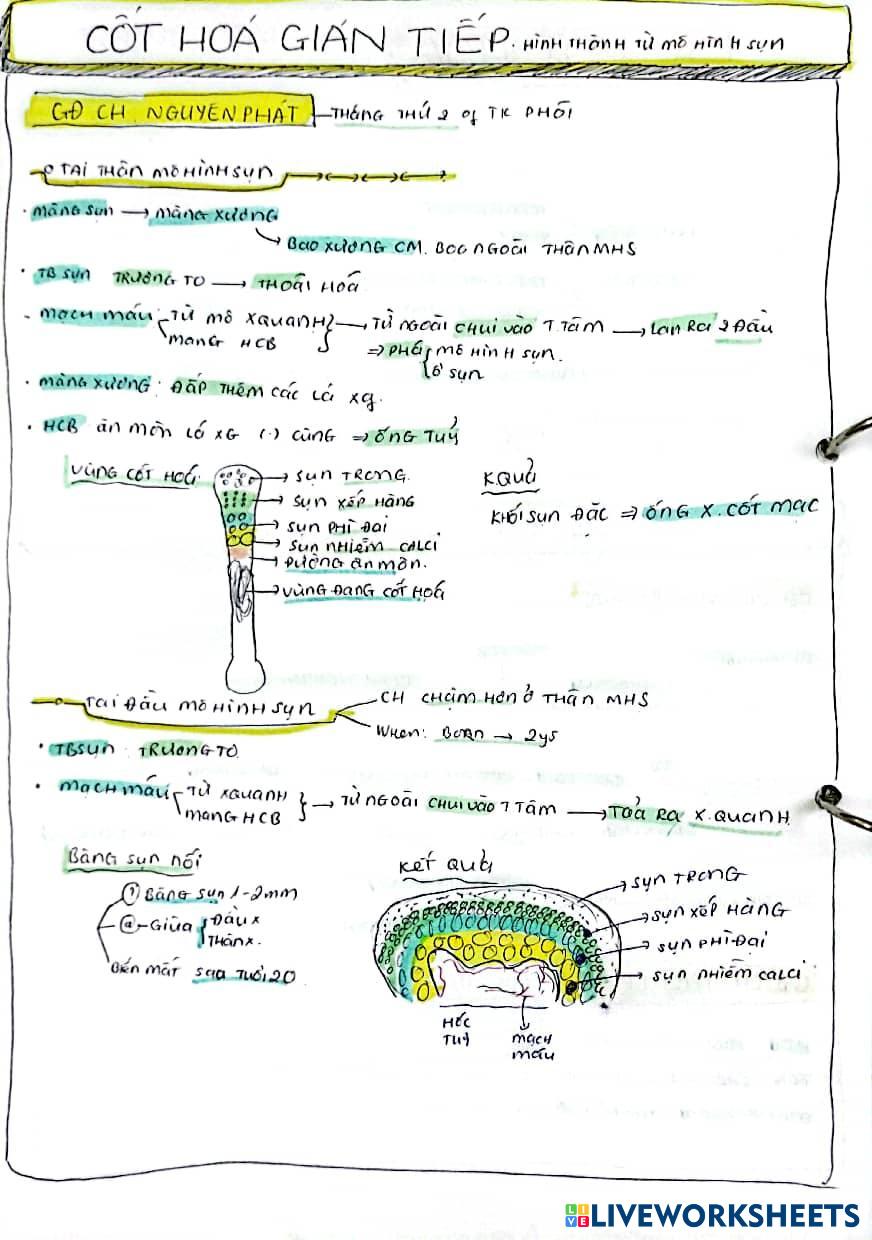 CỐT HOÁ GIÁN TIẾP. HÌNH THÀNH TỪ MÔ HÌNH SỤN
GĐ CH NGUYÊN PHÁT - THÁNG THỨ 2 of TK PHÔI
TẠI THÂN MÔ HÌNH SỤN
MÀNG SỤN → MÀNG XƯƠNG
BAO XƯƠNG CM. BỌC NGOÀI THÂN MHS
TB SỤN TRƯƠNG TO → THOÁI HOÁ
MẠCH MÁU: TỪ MÔ XQUANH → TỪ NGOÀI CHUI VÀO T.TÂM → LAN RA 2 ĐẦU
MANG HCB ⇒ PHÁ MÔ HÌNH SỤN.
Ổ SỤN
MÀNG XƯƠNG: ĐẮP THÊM CÁC LÁ XG.
HCB ĂN MÒN LÓ XG (.) CÙNG ⇒ ỐNG TUỶ
VÙNG CỐT HOÁ.
SỤN TRONG.
SỤN XẾP HÀNG
SỤN PHÌ ĐẠI
SỤN NHIỄM CALCI
ĐƯỜNG ĂN MÒN.
VÙNG ĐANG CỐT HOÁ
KQUẢ
KHỐI SỤN ĐẶC ⇒ ỐNG X. CỐT MẠC
TẠI ĐẦU MÔ HÌNH SỤN
CH CHẬM HƠN Ở THÂN MHS
WHEN: BORN → 2ys
TBSỤN: TRƯƠNG TO.
MẠCH MÁU TỪ XQUANH → TỪ NGOÀI CHUI VÀO T TÂM → TOẢ RA X.QUANH.
MANG HCB
BĂNG SỤN NỐI
① BĂNG SỤN 1-2mm
@-GIỮA ĐẦU X
THÂN X.
BIẾN MẤT SAU TUỔI 20
KẾT QUẢ
SỤN TRONG
SỤN XẾP HÀNG
SỤN PHÌ ĐẠI
SỤN NHIỄM CALCI
HỐC TUỶ
MẠCH MÁU
LIVE LIVEWORKSHEETS